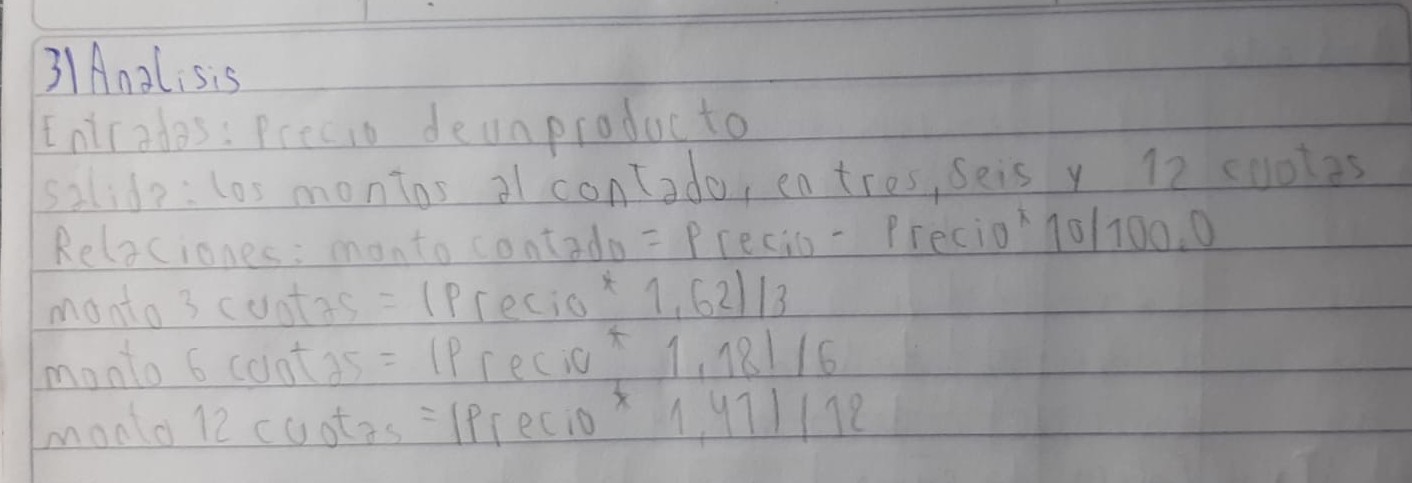 3) Analisis
Entradas: Precio de un producto
Salida: los montos al contado, en tres, seis y 12 cuotas
Relaciones: monto contado = Precio - Precio * 10/100.0
monto 3 cuotas = (Precio * 1,62)/3
monto 6 cuotas = (Precio * 1,18)/6
monto 12 cuotas = (Precio * 1,41)/12